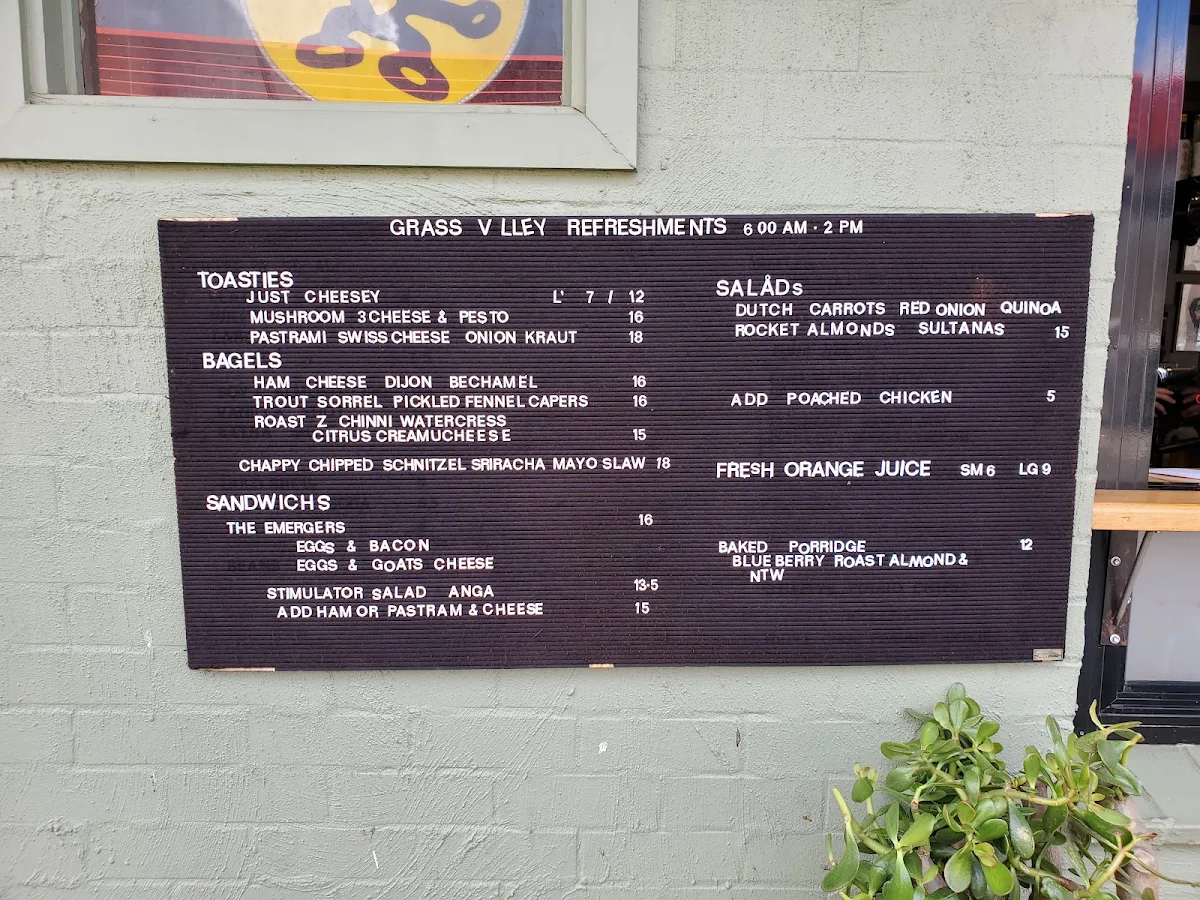 GRASS V LLEY REFRESHMENTS 6 00 AM · 2 PM
TOASTIES
JUST CHEESEY L' 7 / 12
MUSHROOM 3 CHEESE & PESTO 16
PASTRAMI SWISS CHEESE ONION KRAUT 18
BAGELS
HAM CHEESE DIJON BECHAMEL 16
TROUT SORREL PICKLED FENNEL CAPERS 16
ROAST Z CHINNI WATERCRESS
CITRUS CREAMUCHEESE 15
CHAPPY CHIPPED SCHNITZEL SRIRACHA MAYO SLAW 18
SANDWICHS
THE EMERGERS 16
EGGS & BACON
EGGS & GOATS CHEESE
STIMULATOR SALAD ANGA 13·5
ADD HAM OR PASTRAM & CHEESE 15
SALÅDs
DUTCH CARROTS RED ONION QUINOA
ROCKET ALMONDS SULTANAS 15
ADD POACHED CHICKEN 5
FRESH ORANGE JUICE SM 6 LG 9
BAKED PORRIDGE 12
BLUE BERRY ROAST ALMOND &
NTW